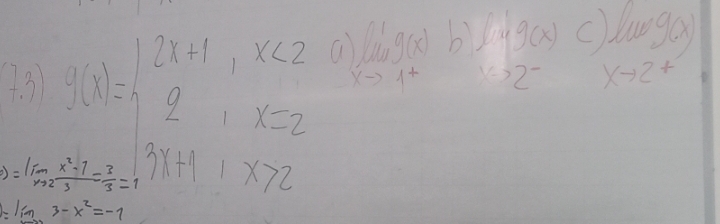 7.3) g(x) = { 2x+1 , x<2
2 , x=2
3x+1 , x>2
a) lim g(x) x→1⁺ b) lim g(x) x→2⁻ c) lim g(x) x→2⁺
) = lim x→2 x²-1/3 = 3/3 = 1
= lim 3-x² = -1